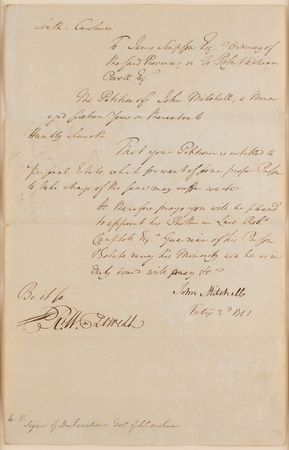 North Carolina
To James Simpson Esqr. Ordinary of
the said Province, or to Robt. William
Powell Esqr.
The Petition of John Mitchell, a Minor
aged sixteen Years or thereabouts
Humbly Sheweth
That your Petitioner is entitled to
personal Estate which for want of some proper Person
to take charge of the same may suffer waste
He therefore prays you will be pleased
to appoint his Brother in Law Robt.
Campbell Esqr. Guardian of his Person
& Estate during his Minority and he as in
Duty bound will pray &c
John Mitchell
Feby 2d. 1781
Be it so
R. W. Powell
Signer of Declaration & Govt. of S Carolina